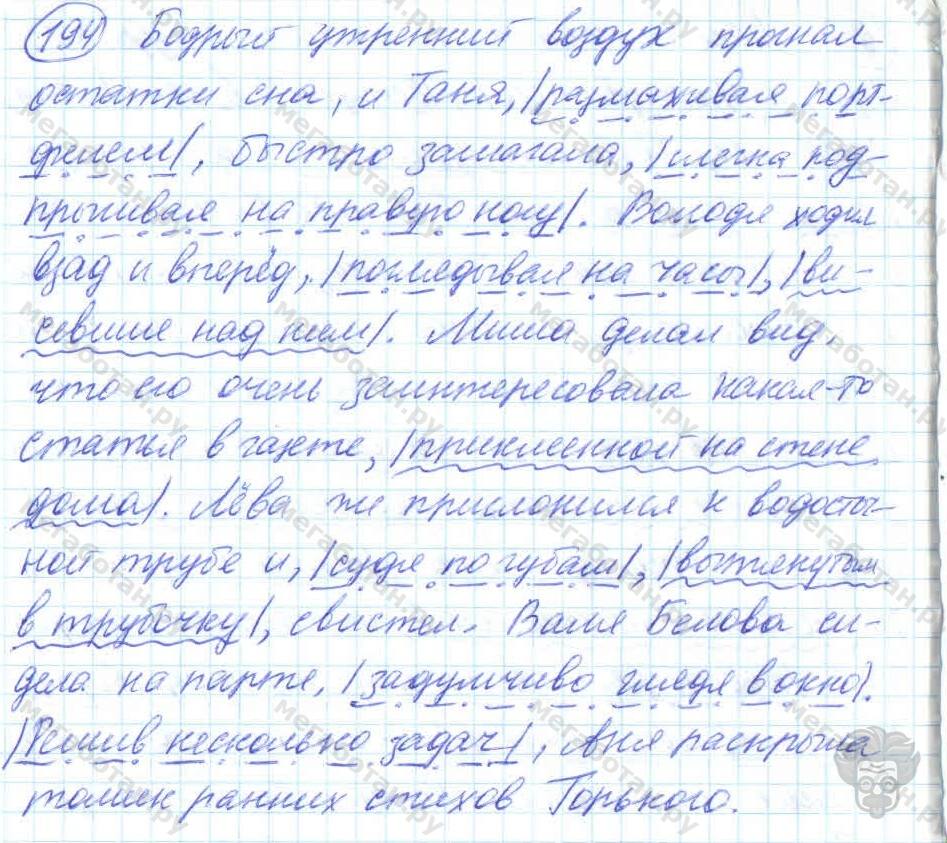 194 Бодрый утренний воздух прогнал
остатки сна, и Таня, |размахивая порт-
фелем|, быстро зашагала, |слегка под-
прыгивая на правую ногу|. Володя ходил
взад и вперёд, |поглядывая на часы|, |ви-
севшие над ним|. Миша делал вид,
что его очень заинтересовала какая-то
статья в газете, |приклеенной на стене
дома|. Лёва же прислонился к водосто-
ной трубе и, |судя по губам|, |вытянутым
в трубочку|, свистел. Валя Белова си-
дела на парте, |задумчиво глядя в окно|.
|Решив несколько задач|, Аня раскрыла
томик ранних стихов Горького.
мегаботан.ру